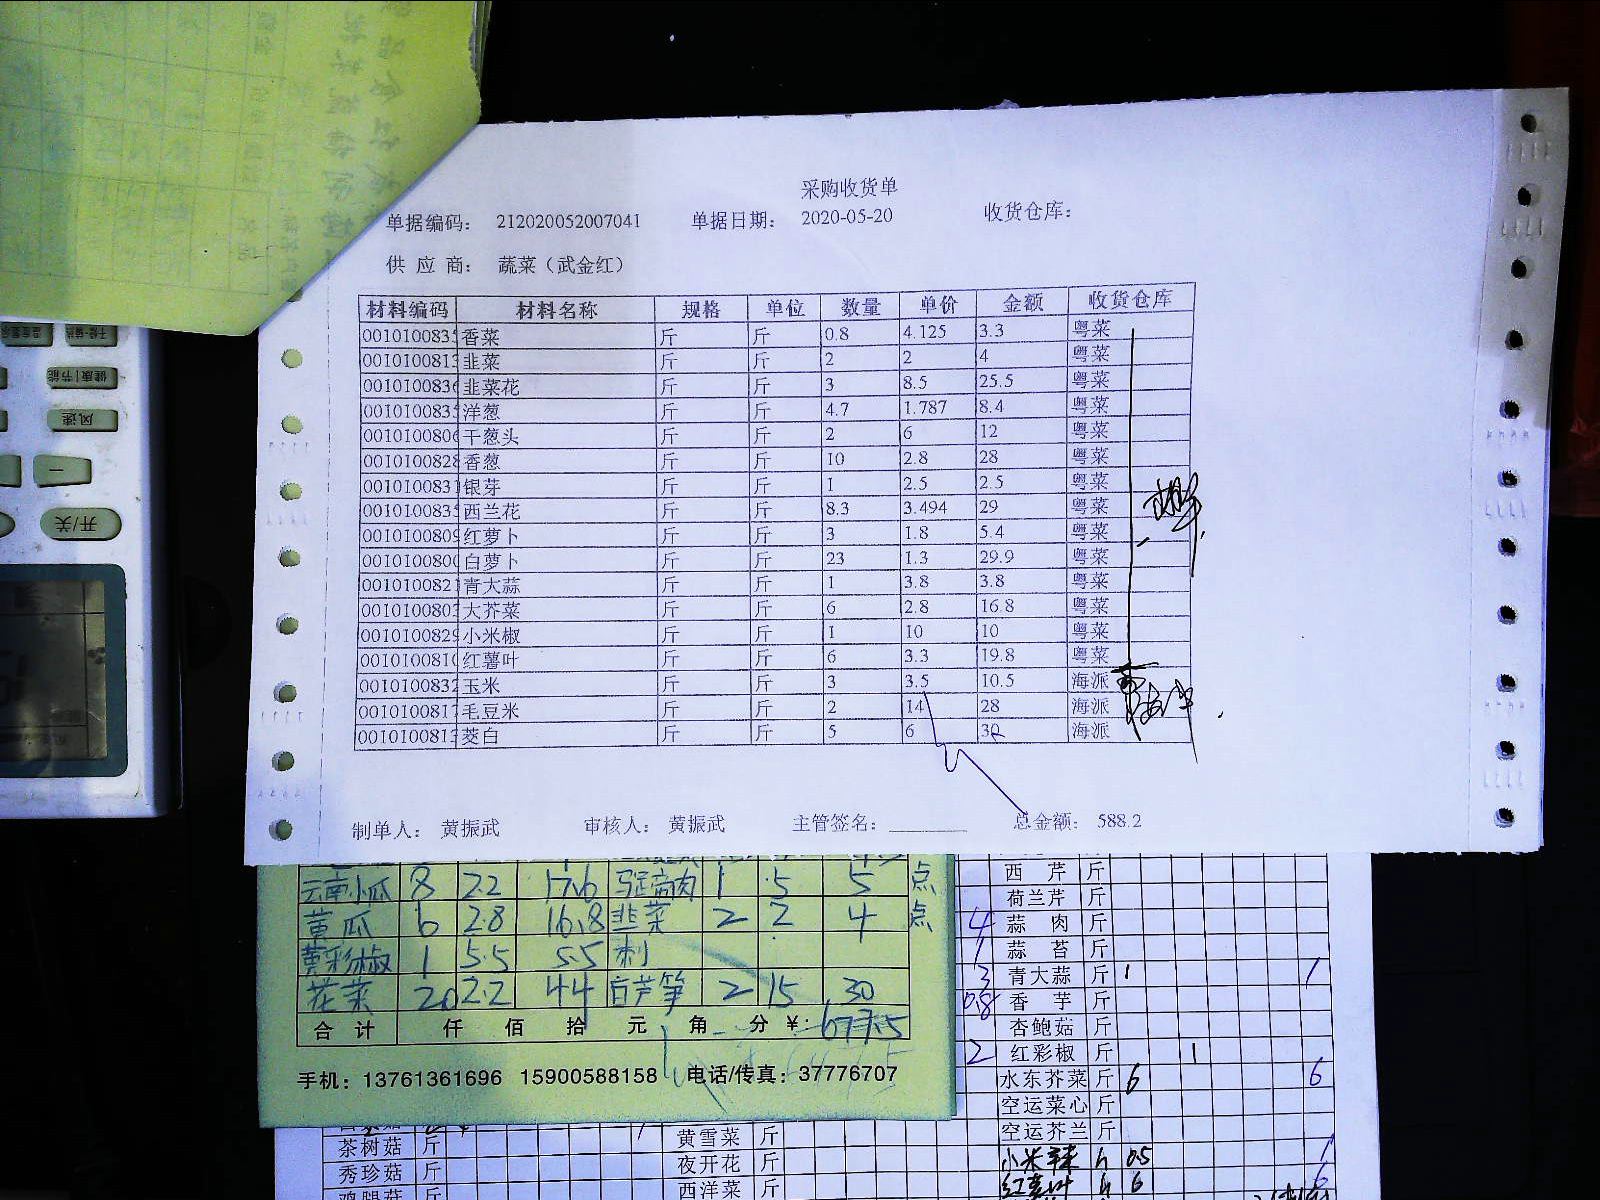 采购收货单
单据编码： 212020052007041 单据日期： 2020-05-20 收货仓库：
供应商： 蔬菜（武金红）
材料编码 材料名称 规格 单位 数量 单价 金额 收货仓库
0010100835 香菜 斤 斤 0.8 4.125 3.3 粤菜
001010081 韭菜 斤 斤 2 2 4 粤菜
0010100836 韭菜花 斤 斤 3 8.5 25.5 粤菜
001010083 洋葱 斤 斤 4.7 1.787 8.4 粤菜
001010080 干葱头 斤 斤 2 6 12 粤菜
0010100828 香葱 斤 斤 10 2.8 28 粤菜
001010083 银芽 斤 斤 1 2.5 2.5 粤菜
001010083 西兰花 斤 斤 8.3 3.494 29 粤菜
0010100809 红萝卜 斤 斤 3 1.8 5.4 粤菜
001010080 白萝卜 斤 斤 23 1.3 29.9 粤菜
001010082 青大蒜 斤 斤 1 3.8 3.8 粤菜
001010080 大芥菜 斤 斤 6 2.8 16.8 粤菜
0010100829 小米椒 斤 斤 1 10 10 粤菜
001010081 红薯叶 斤 斤 6 3.3 19.8 粤菜
001010083 玉米 斤 斤 3 3.5 10.5 海派
001010081 毛豆米 斤 斤 2 14 28 海派
001010081 茭白 斤 斤 5 6 30 海派
制单人： 黄振武 审核人： 黄振武 主管签名： 总金额： 588.2
云南小瓜 8 2.2 17.6 1 5 5 点
黄瓜 6 2.8 16.8 韭菜 2 2 4 点
黄彩椒 1 5.5 5.5
花菜 20 2.2 44 白芦笋 2 15 30
合计 仟 佰 拾 元 角 分 ¥： 677.5
手机：13761361696 15900588158 电话/传真：37776707
西芹 斤
荷兰芹 斤
4 蒜肉 斤
1 蒜苔 斤
3 青大蒜 斤 1 1
0.8 香芋 斤
杏鲍菇 斤
2 红彩椒 斤 1
水东芥菜 斤 6 6
空运菜心 斤
空运芥兰 斤
小米辣 0.5 1
红薯叶 6 6
茶树菇 斤 黄雪菜 斤
秀珍菇 斤 夜开花 斤
鸡腿菇 斤 西洋菜 斤
健康|节能
风速
开/关